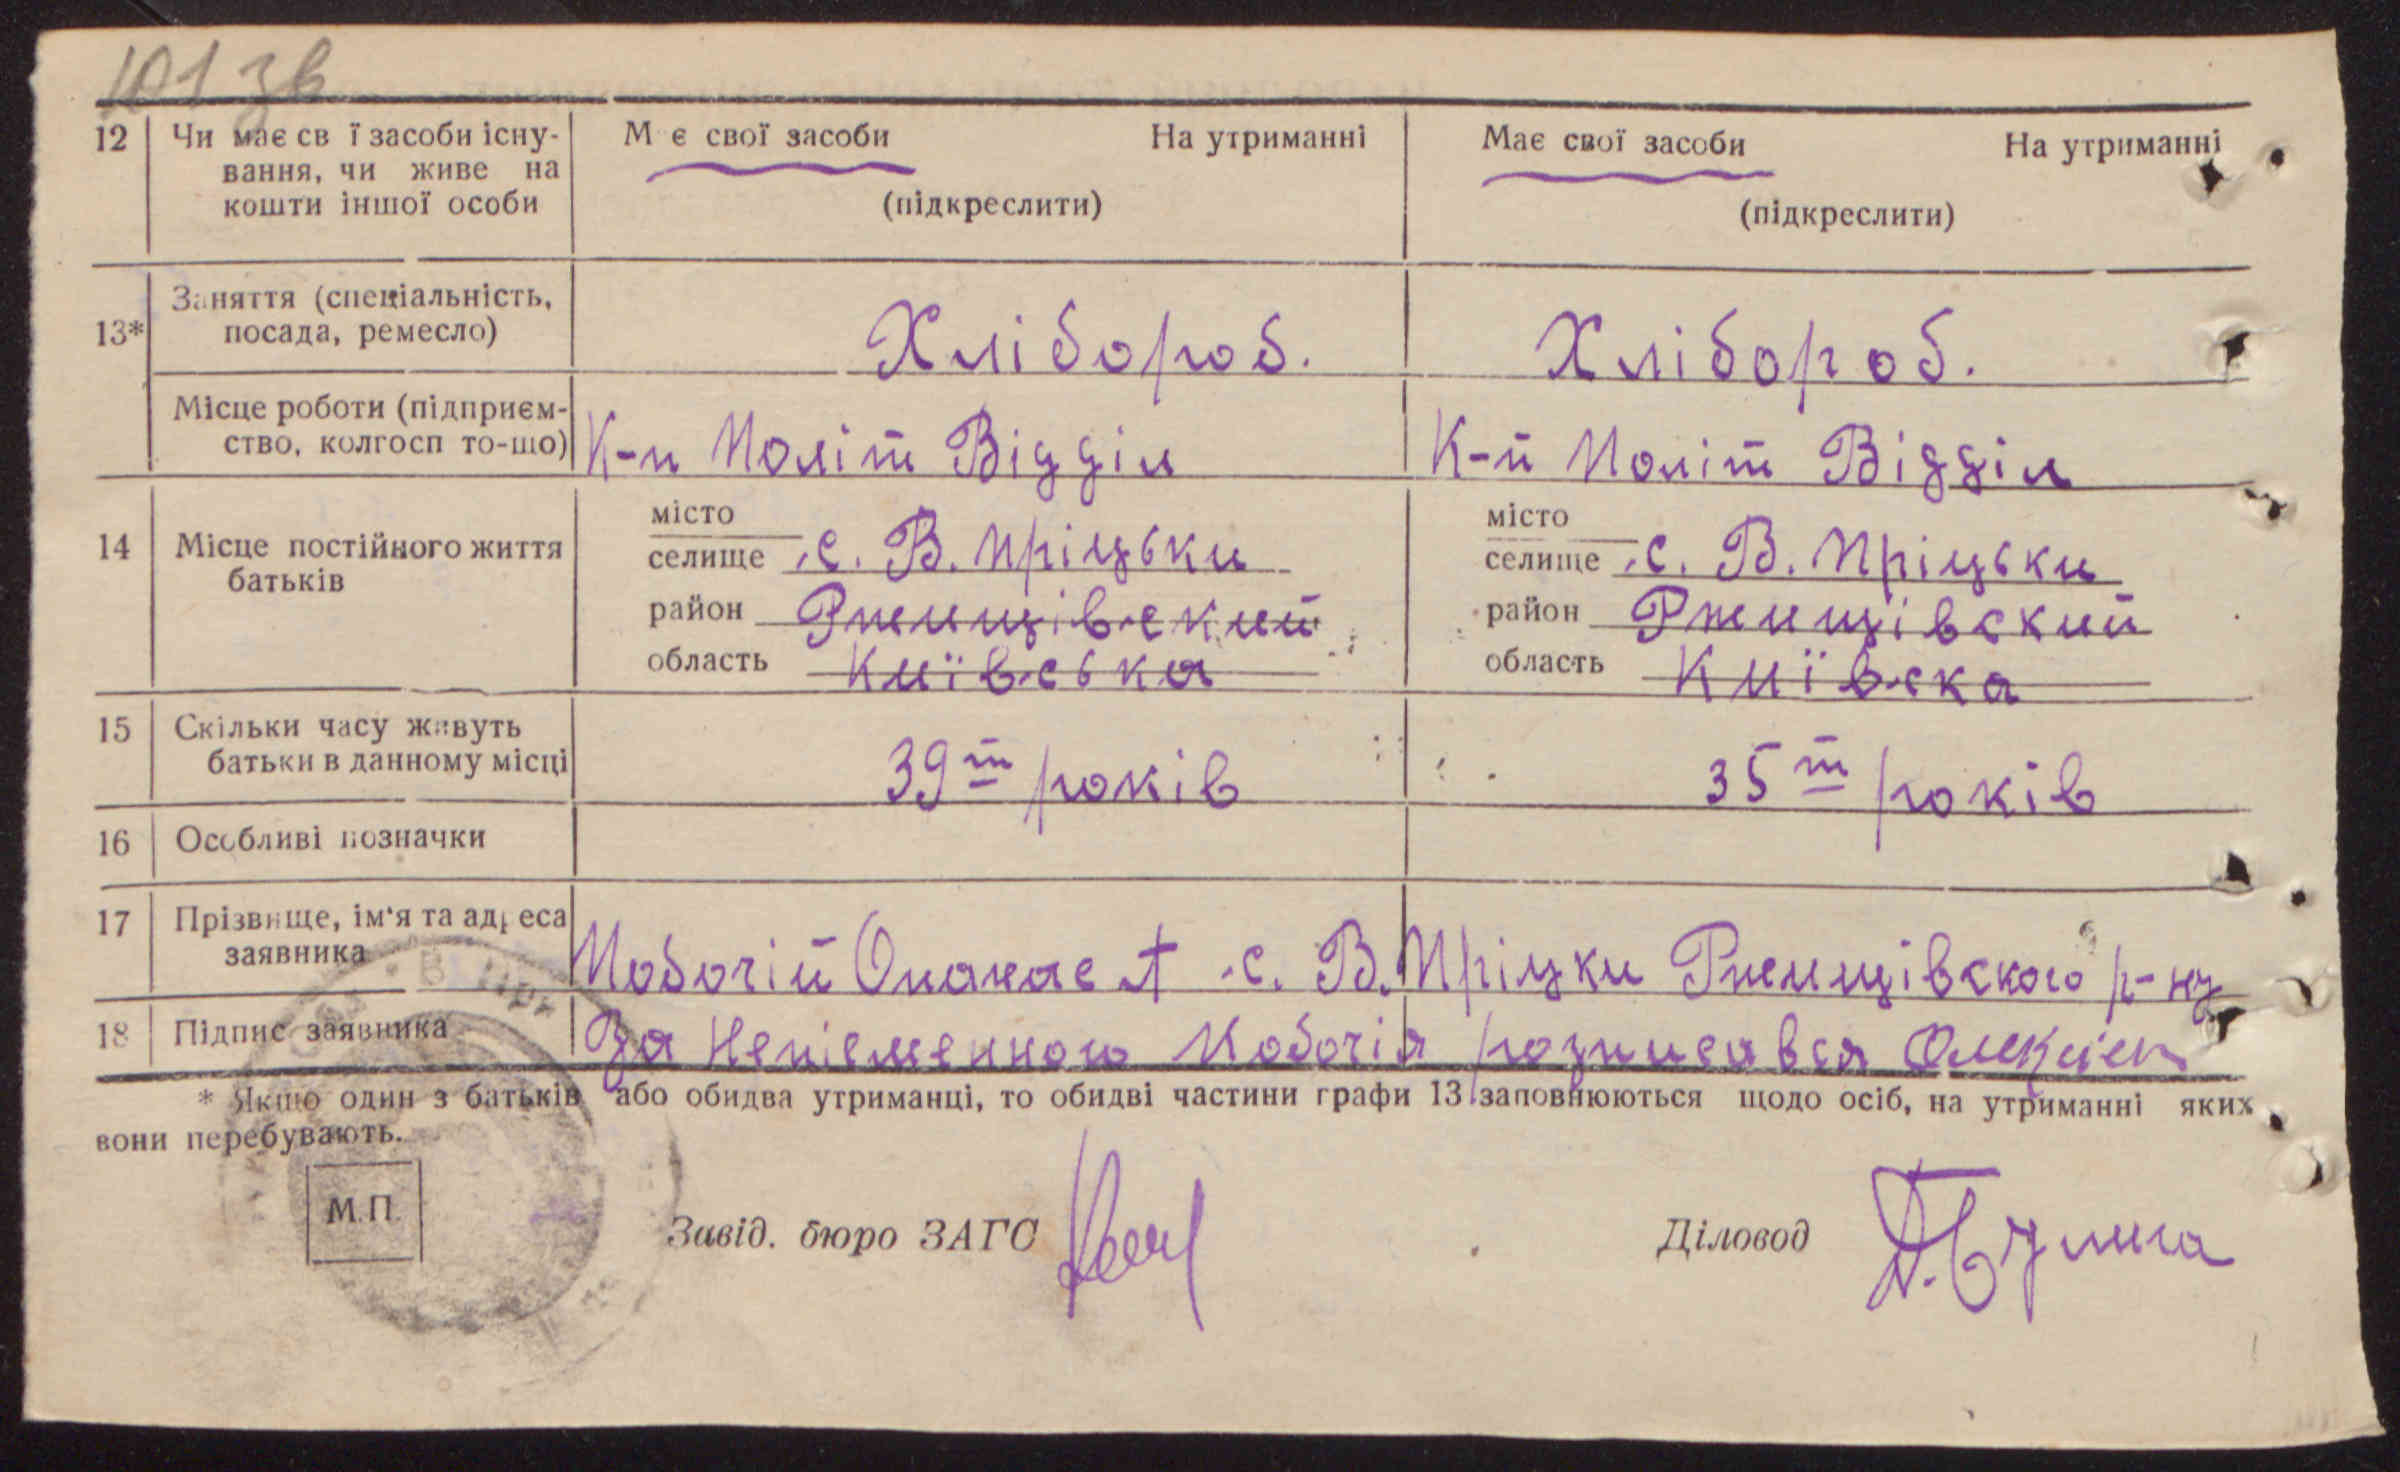 101 зв
12 Чи має св ї засоби існу- М є свої засоби На утриманні Має свої засоби На утриманні
вання, чи живе на
кошти іншої особи (підкреслити) (підкреслити)
Заняття (спеціальність,
13* посада, ремесло) Хлібороб. Хлібороб.
Місце роботи (підприєм-
ство, колгосп то-що) К-п Політ Відділ К-п Політ Відділ
місто місто
14 Місце постійного життя селище с. В. Пріцьки селище с. В. Пріцьки
батьків район Ржищівский район Ржищівский
область Київська область Київска
15 Скільки часу живуть
батьки в данному місці 39 т років 35 т років
16 Особливі позначки
17 Прізвище, ім'я та адреса
заявника Побочій Опанас А с. В. Пріцки Ржищівского р-ну
18 Підпис заявника За Непісменного Побочія розписався
* Якщо один з батьків або обидва утриманці, то обидві частини графи 13 заповнюються щодо осіб, на утриманні яких
вони перебувають.
М.П.
Завід. бюро ЗАГС Діловод